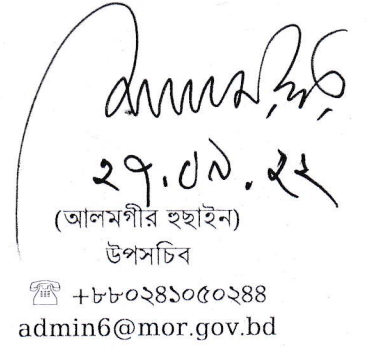 ২৭.০৯.২২
(আলমগীর হুছাইন)
উপসচিব
☏ +৮৮০২৪১০৫০২৪৪
admin6@mor.gov.bd